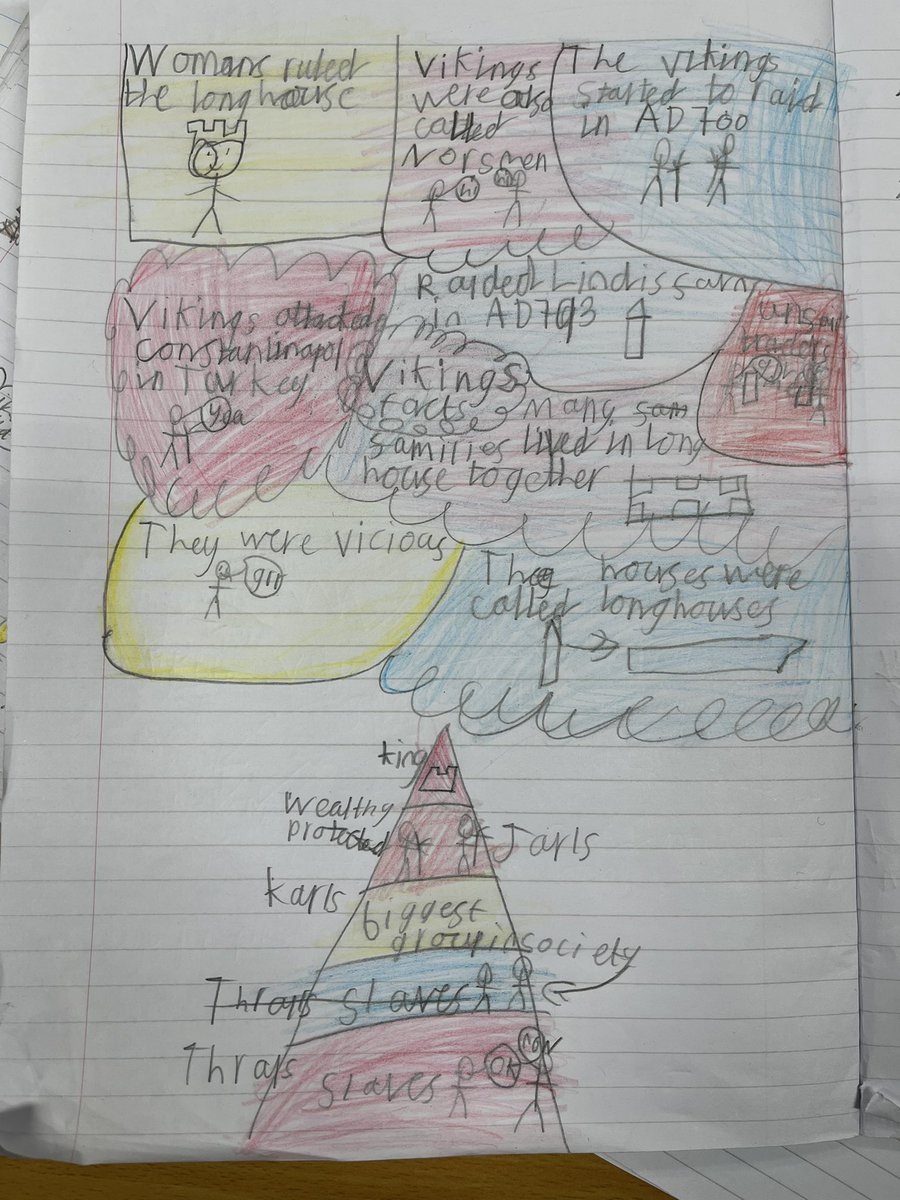 Womans ruled
the longhouse
Vikings
were also
called
Norsmen
hi
The vikings
started to raid
in AD700
Vikings attacked
constantinapol
in Turkey
Yga
Raided Lindissarn
in AD793
traders
Vikings
facts
Many
families lived in long
house together
They were vicious
grr
The houses were
called longhouses
king
Wealthy
protected
Jarls
karls
biggest
group in society
Thrals slaves
Thrals
slaves
OK
now